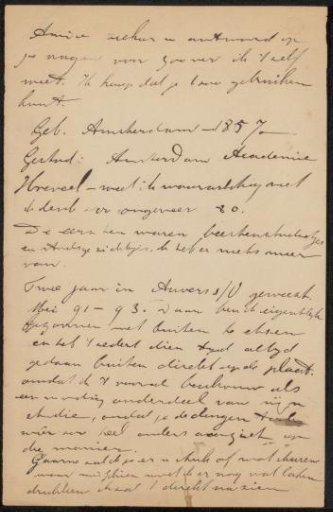 Amice ziehier u antwoord op
je vragen voor zoover ik 't zelf
weet. Ik hoop dat je 't zoo gebruiken
kunt.
Geb. Amsterdam 1857
Gestud: Amsterdam Academie
Hoeveel – weet ik waarachtig niet
ik denk – er ongeveer 80.
De eersten waren beestenstudietjes
en Stadsgezichtjes, ik heb er niets meer
van.
Twee jaar in Auvers s/O geweest
Mei 91 – 93. Daar ben ik eigenlijk
begonnen met buiten te etsen
en heb 't sedert dien tyd altyd
gedaan buiten direkt op de plaat.
omdat ik 't vooral beschouw als
een onderdeel van mijn
studie, omdat je de dingen
weer eer heel anders aanziet op
die manier.
Gaarne zal ik je er
misschien moet ik er nog wat laten
drukken 't direkt nazien